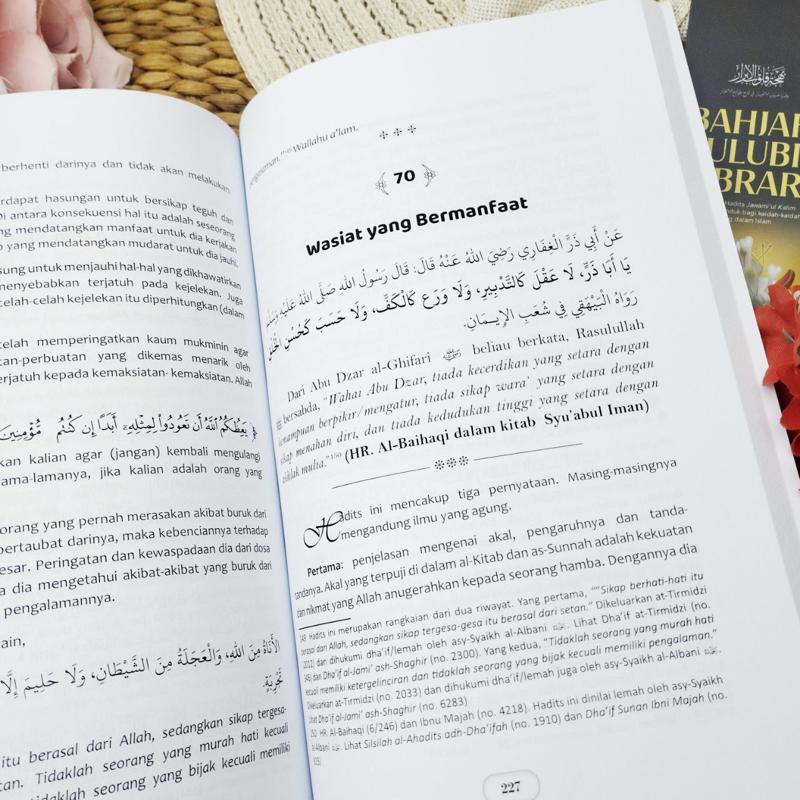 berhenti darinya dan tidak akan melakukan
rdapat hasungan untuk bersikap teguh dan
Di antara konsekuensi hal itu adalah seseorang
ng mendatangkan manfaat untuk dia kerjakan
yang mendatangkan mudarat untuk dia jauhi.
sung untuk menjauhi hal-hal yang dikhawatirkan
menyebabkan terjatuh pada kejelekan. Juga
celah-celah kejelekan itu diperhitungkan (dalam
telah memperingatkan kaum mukminin agar
tan-perbuatan yang dikemas menarik oleh
erjatuh kepada kemaksiatan- kemaksiatan. Allah
يَعِظُكُمُ اللَّهُ أَن تَعُودُوا لِمِثْلِهِ أَبَدًا إِن كُنتُم مُّؤْمِنِينَ
kan kalian agar (jangan) kembali mengulangi
ama-lamanya, jika kalian adalah orang yang
orang yang pernah merasakan akibat buruk dari
bertaubat darinya, maka kebenciannya terhadap
esar. Peringatan dan kewaspadaan dia dari dosa
a dia mengetahui akibat-akibat yang buruk dari
pengalamannya.
ain,
الْأَنَاةُ مِنَ اللهِ، وَالْعَجَلَةُ مِنَ الشَّيْطَانِ، وَلَا حَلِيمَ إِلَّا
تَجْرِبَةٍ.
itu berasal dari Allah, sedangkan sikap tergesa-
tan. Tidaklah seorang yang murah hati kecuali
tidaklah seorang yang bijak kecuali memiliki
Wallahu a'lam.
70
Wasiat yang Bermanfaat
عَنْ أَبِي ذَرٍّ الْغِفَارِي رَضِيَ اللهُ عَنْهُ قَالَ: قَالَ رَسُولُ اللهِ صَلَّى اللهُ عَلَيْهِ وَسَلَّمَ
يَا أَبَا ذَرٍّ، لَا عَقْلَ كَالتَّدْبِيرِ، وَلَا وَرَعَ كَالْكَفِّ، وَلَا حَسَبَ كَحُسْنِ الْخُلُقِ
رَوَاهُ الْبَيْهَقِي فِي شُعَبِ الْإِيـمَانِ.
Dari Abu Dzar al-Ghifari beliau berkata, Rasulullah
ﷺ bersabda, "Wahai Abu Dzar, tiada kecerdikan yang setara dengan
kemampuan berpikir/mengatur, tiada sikap wara' yang setara dengan
sikap menahan diri, dan tiada kedudukan tinggi yang setara dengan
akhlak mulia." 150 (HR. Al-Baihaqi dalam kitab Syu'abul Iman)
Hadits ini mencakup tiga pernyataan. Masing-masingnya
mengandung ilmu yang agung.
Pertama: penjelasan mengenai akal, pengaruhnya dan tanda-
tandanya. Akal yang terpuji di dalam al-Kitab dan as-Sunnah adalah kekuatan
dan nikmat yang Allah anugerahkan kepada seorang hamba. Dengannya dia
149 Hadits ini merupakan rangkaian dari dua riwayat. Yang pertama, ""Sikap berhati-hati itu
berasal dari Allah, sedangkan sikap tergesa-gesa itu berasal dari setan." Dikeluarkan at-Tirmidzi
2012) dan dihukumi dha'if/lemah oleh asy-Syaikh al-Albani. Lihat Dha'if at-Tirmidzi (no.
345) dan Dha'if al-Jami' ash-Shaghir (no. 2300). Yang kedua, "Tidaklah seorang yang murah hati
kecuali memiliki ketergelinciran dan tidaklah seorang yang bijak kecuali memiliki pengalaman."
Dikeluarkan at-Tirmidzi (no. 2033) dan dihukumi dha'if/lemah juga oleh asy-Syaikh al-Albani.
Lihat Dha'if al-Jami' ash-Shaghir (no. 6283)
150 HR. Al-Baihaqi (6/246) dan Ibnu Majah (no. 4218). Hadits ini dinilai lemah oleh asy-Syaikh
al-Albani. Lihat Silsilah al-Ahadits adh-Dha'ifah (no. 1910) dan Dha'if Sunan Ibni Majah (no.
227
بهجة قلوب الأبرار
BAHJAH
ULUBI
BRAR
Hadits Jawami'ul Kalim
nduk bagi kaidah-kaidah
g dalam Islam